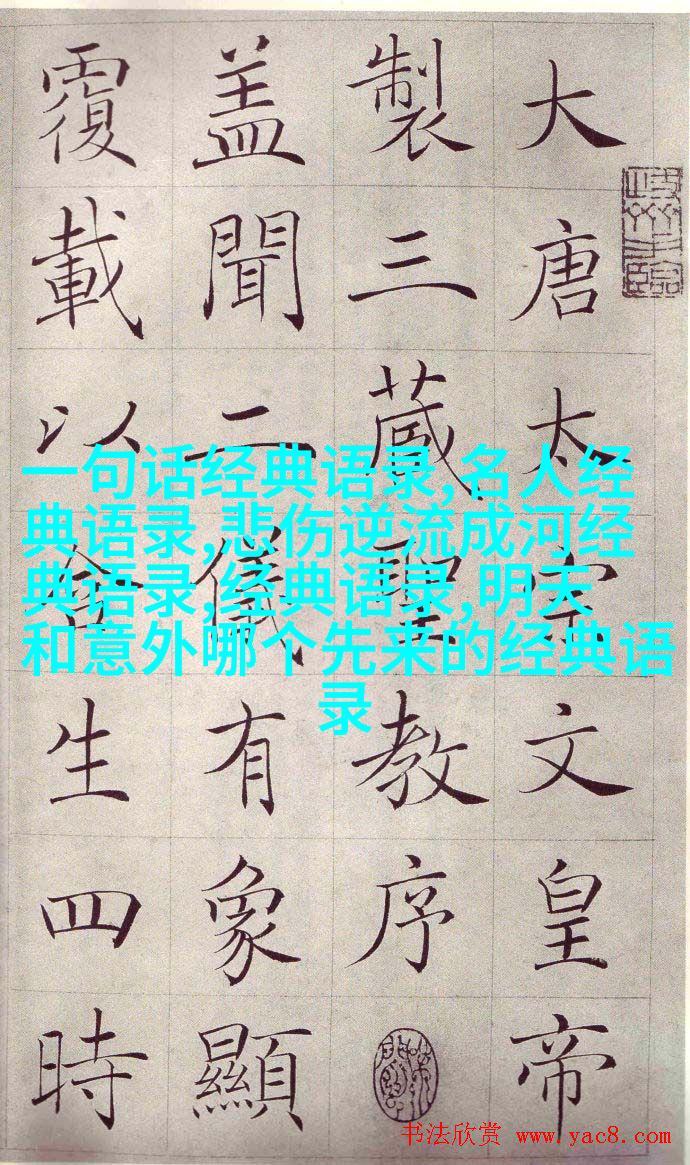 大唐太宗文皇帝
製三蔵聖教序
盖聞二儀有象顯
覆載以含生四時
一句话经典语录,名人经
典语录,悲伤逆流成河经
典语录,经典语录,明天
和意外哪个先来的经典语
录
书法欣赏 www.yac8.com